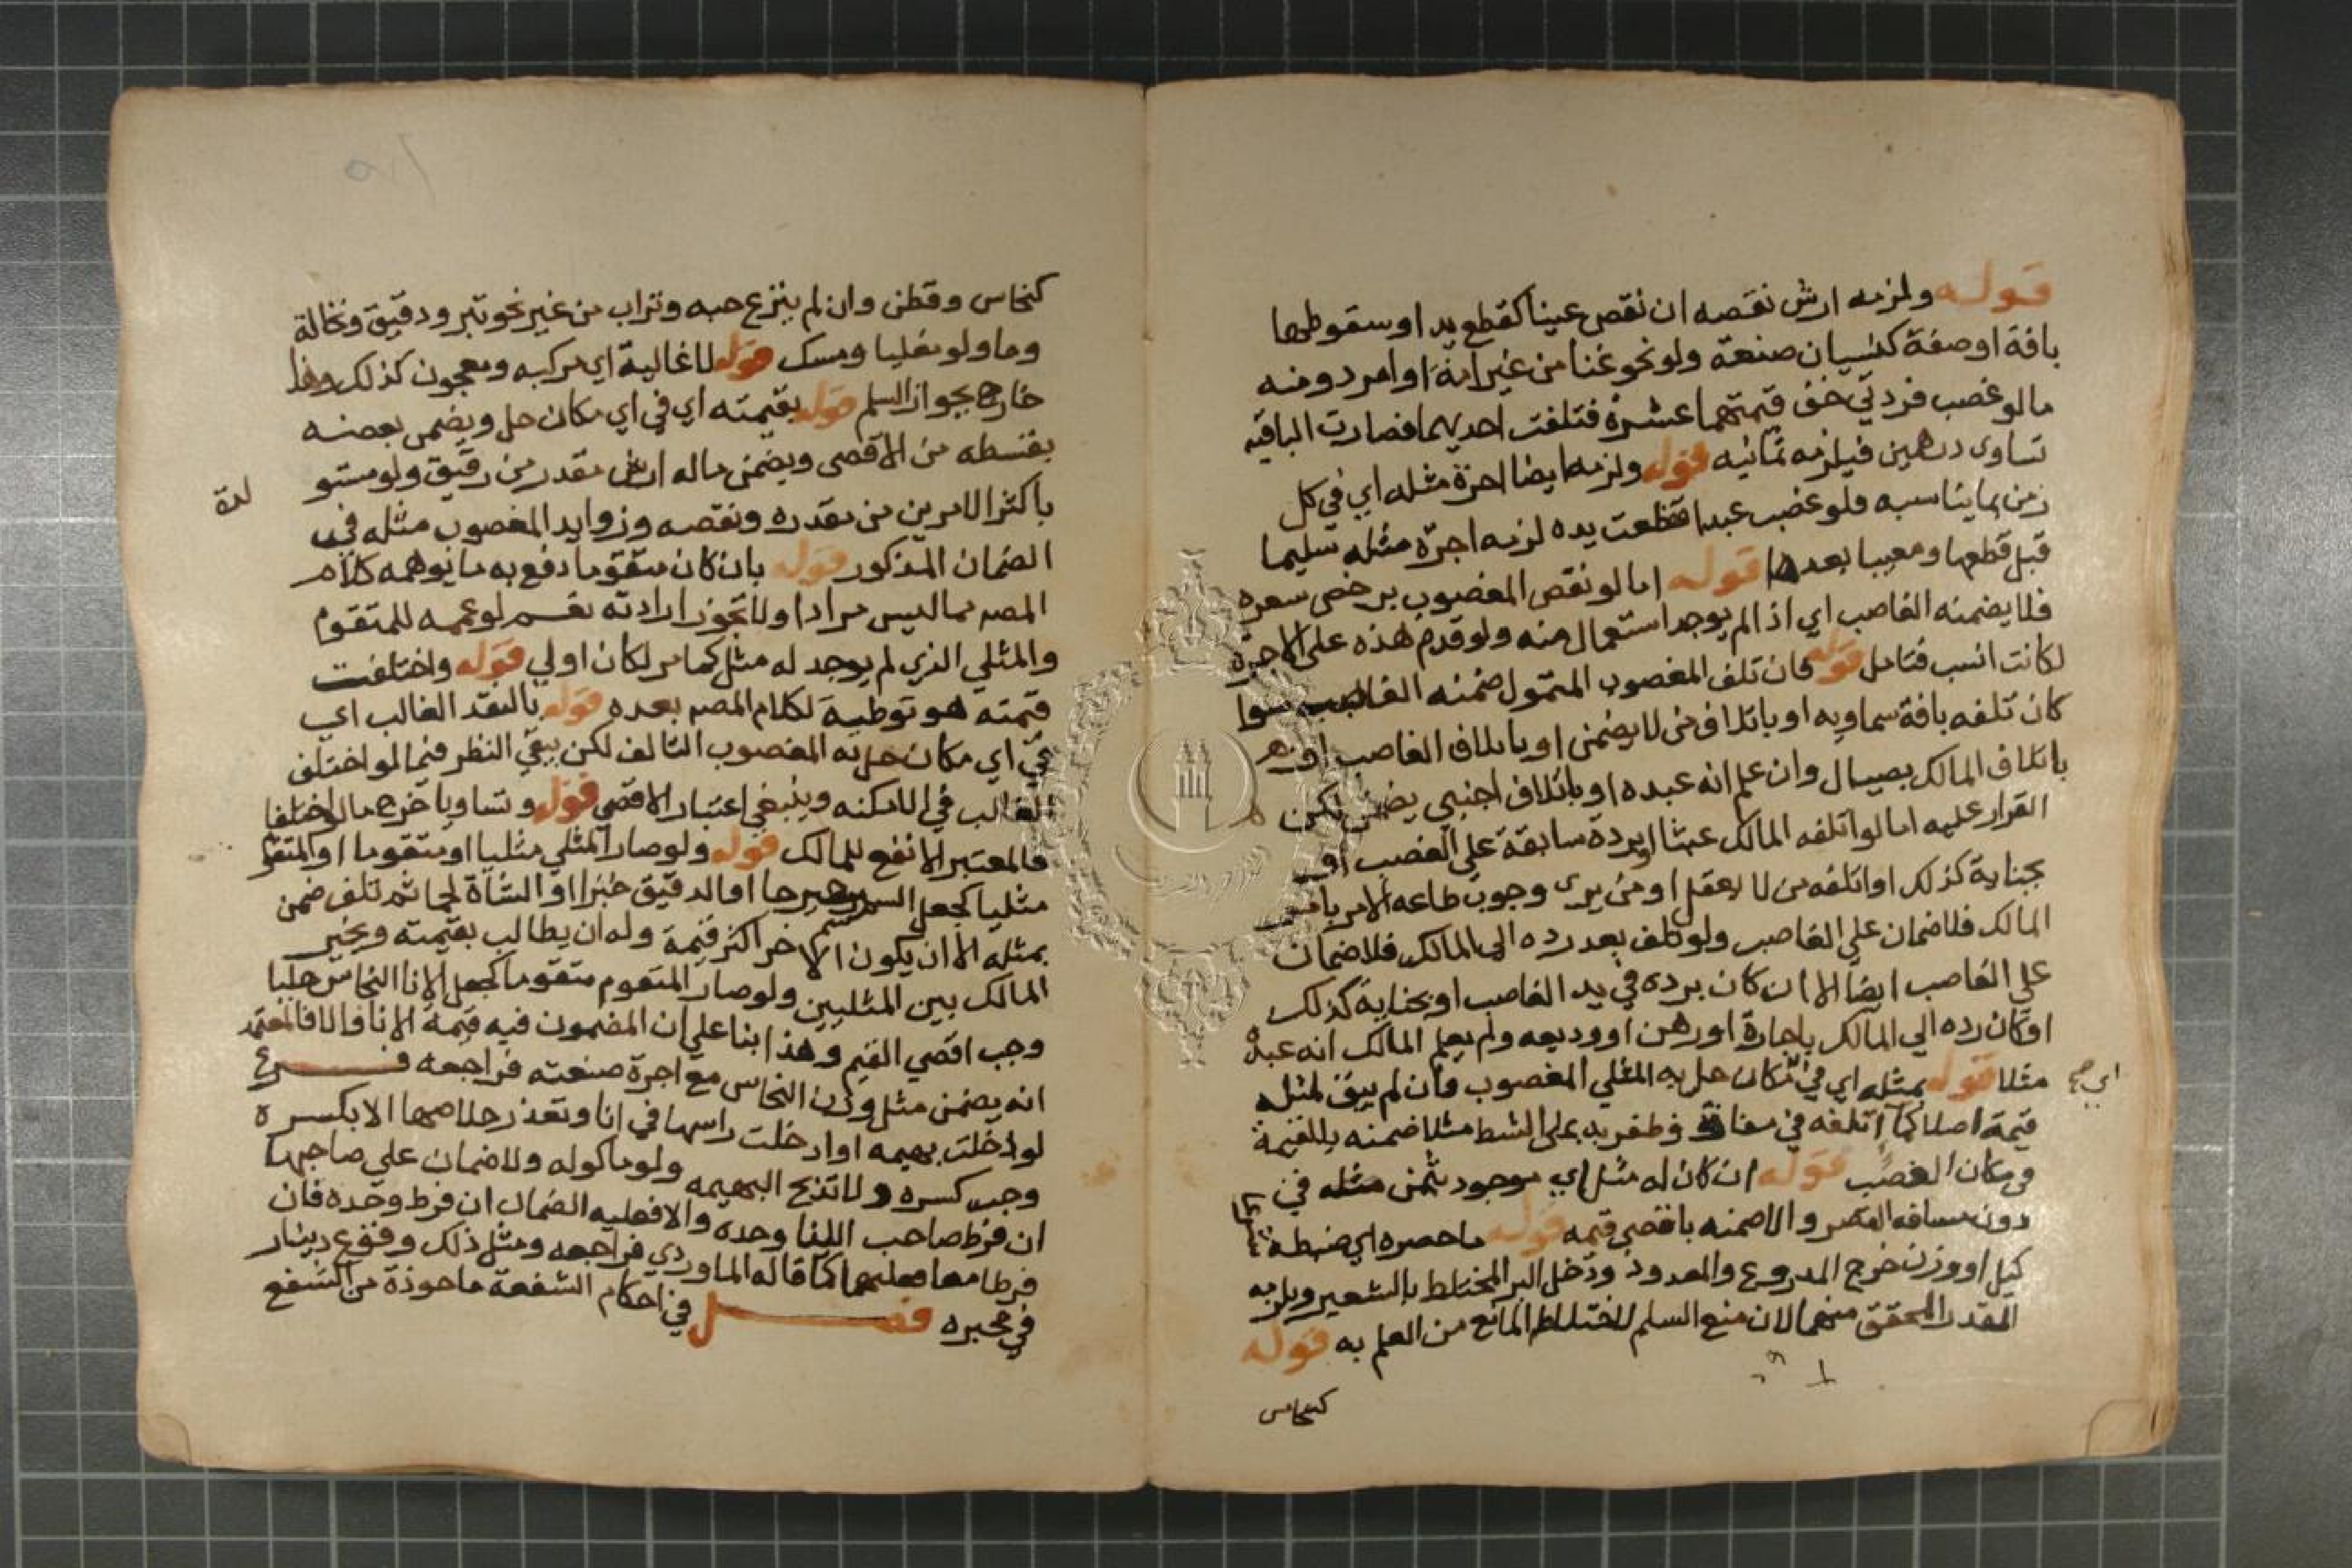 قوله ولزمه ارش نقصه ان نقص عينا كقطع يد او سقوطها
بافة او صفة كنسيان صنعة ولو نحو غنا من غير امة او امرد ومنه
مالو غصب فردتي خف قيمتهما عشرة فتلفت احديهما فصارت الباقيه
تساوى درهمين فيلزمه ثمانيه قوله ولزمه ايضا اجرة مثله اي في كل
زمن بما يناسبه فلو غصب عبدا فقطعت يده لزمه اجرة مثله سليما
قبل قطعها ومعيبا بعدها قوله اما لو نقص المغصوب برخص سعره
فلا يضمنه الغاصب اي اذا لم يوجد استعمال منه ولو قدم هذه على الاجرة
لكانت انسب فتامل قوله فان تلف المغصوب المتمول ضمنه الغاصب سوا
كان تلفه بافة سماويه او باتلاف من لا يضمن او باتلاف الغاصب او
باتلاف المالك بصيال وان علم انه عبده او باتلاف اجنبي يضمن لكن
القرار عليه اما لو اتلفه المالك عبثا او بردة سابقة علي الغصب او
بجناية كذلك او اتلفه من لا يعقل او من يرى وجوب طاعه الامر بامر
المالك فلا ضمان علي الغاصب ولو تلف بعد رده الى المالك فلا ضمان
علي الغاصب ايضا الا ان كان برده في يد الغاصب او بجناية كذلك
او كان رده الي المالك باجارة او رهن او وديعه ولم يعلم المالك انه عبده
مثلا قوله بمثله اي في مكان حل به المثلي المغصوب فان لم يبق لمثله
اي
قيمة اصلا كما اتلفه في مفازة وظفر به على الشط مثلا ضمنه بالقيمة
في مكان الغصب قوله ان كان له مثل اي موجود بثمن مثله في
دون مسافه القصر والا ضمنه باقصى قيمه قوله ما حصره اي ضبطه
كيل او وزن خرج المذروع والمعدود ودخل البر المختلط بالشعير ويلزمه
القدر المحقق منهما لان منع السلم لاختلاط المانع من العلم به قوله
كنحاس
كنحاس وقطن وان لم ينزع حبه وتراب من غير نحو تبر ودقيق ونخالة
وما ولو مغليا ومسك قوله لا غالية اي مركبه ومعجون كذلك وهذا
خارج بجواز السلم قوله بقيمته اي في اي مكان حل ويضمن بعضه
بقسطه من الاقصى ويضمن ماله ارش مقدر من رقيق ولو مستو
لدة
باكثر الامرين من مقدره ونقصه وزوايد المغصوب مثله في
الضمان المذكور قوله بان كان متقوما دفع به ما يوهمه كلام
المصـ مما ليس مرادا ولا تجوز ارادته نعـم لو عممه للمتقوم
والمثلي الذي لم يوجد له مثل كما مر لكان اولي قوله واختلفت
قيمته هو توطية لكلام المصـ بعده قوله بالنقد الغالب اي
في اي مكان حل به المغصوب التالف لكن يبقي النظر فيما لو اختلف
الغالب في الامكنه وينبغي اعتبار الاقصي قوله وتساويا خرج ما لو اختلفا
فالمعتبر الانفع للمالك قوله ولو صار المثلي مثليا او متقوما او المتقوم
مثليا كجعل السمسم شيرجا او الدقيق خبزا او الشاة لحما ثم تلف ضمن
بمثله الا ان يكون الاخر اكثر قيمة وله ان يطالب بقيمته ويخير
المالك بين المثليين ولو صار المتقوم متقوما كجعل الانا النحاس حليا
وجب اقصي القيم وهذا بنا علي ان المضمون فيه قيمة الانا والا فالمعتمد
انه يضمن مثل وزن النحاس مع اجرة صنعته فراجعه فــرع
لو ادخلت بهيمه او ادخلت راسها في انا وتعذر خلاصها الا بكسره
وجب كسره ولا تذبح البهيمه ولو ماكوله ولا ضمان علي صاحبها
ان فرط صاحب الانا وحده والا فعليه الضمان ان فرط وحده فان
فرطا معا فعليهما كما قاله الماوردي فراجعه ومثل ذلك وقوع دينار
في محبره فصــل في احكام الشفعة ماخوذة من الشفع